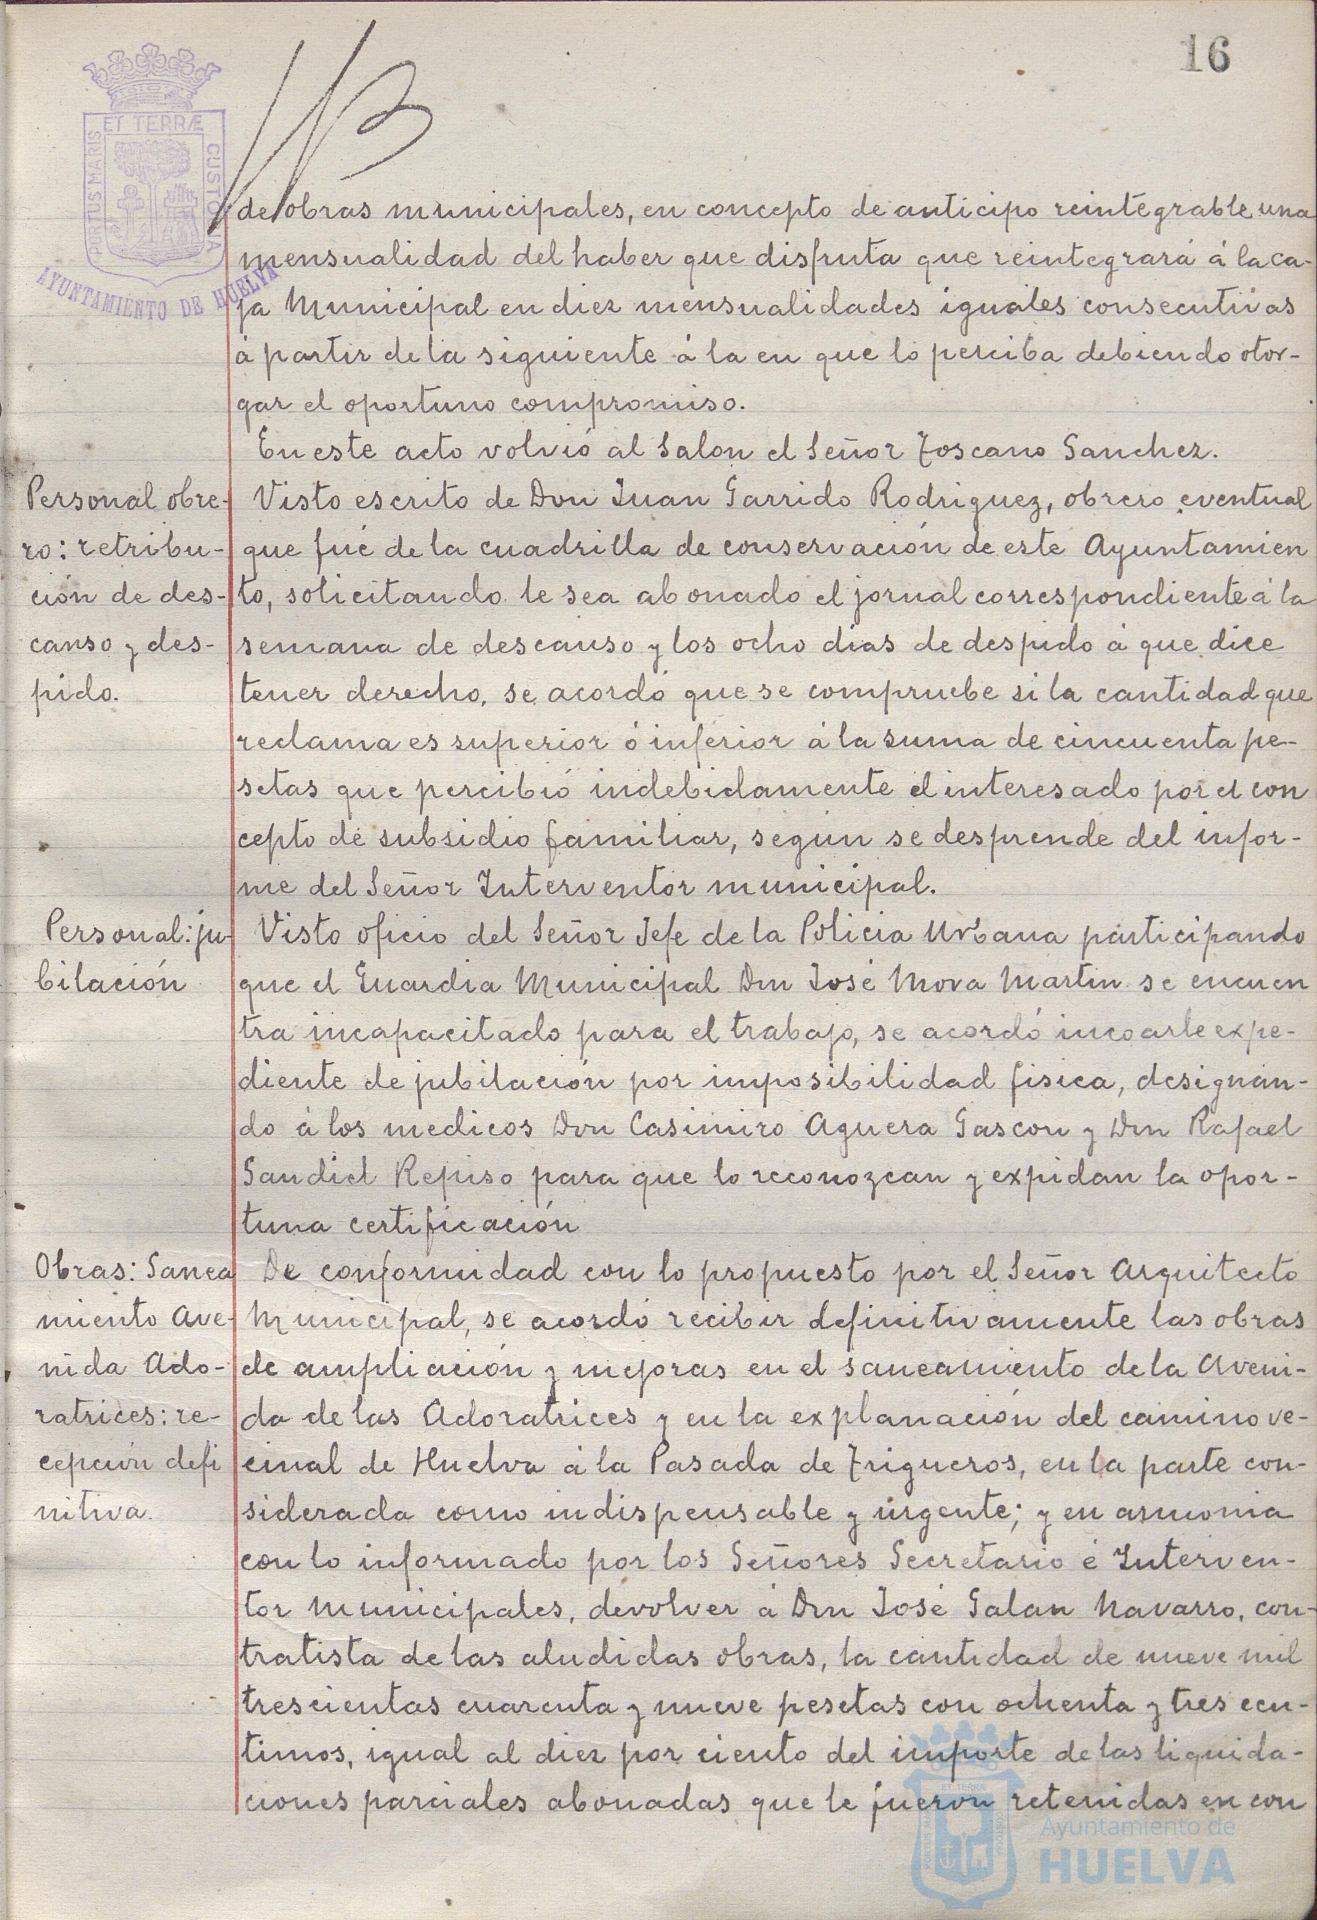 16
PORTUS MARIS ET TERRÆ CUSTODIA
AYUNTAMIENTO DE HUELVA
de obras municipales, en concepto de anticipo reintegrable una
mensualidad del haber que disfruta que reintegrará á la ca-
ja Municipal en diez mensualidades iguales consecutivas
á partir de la siguiente á la en que lo perciba debiendo otor-
gar el oportuno compromiso.
En este acto volvió al Salon el Señor Toscano Sanchez.
Personal obre-
ro: retribu-
ción de des-
canso y des-
pido.
Visto escrito de Don Juan Garrido Rodriguez, obrero eventual
que fué de la cuadrilla de conservación de este Ayuntamien
to, solicitando le sea abonado el jornal correspondiente á la
semana de descanso y los ocho dias de despido á que dice
tener derecho, se acordó que se compruebe si la cantidad que
reclama es superior ó inferior á la suma de cincuenta pe-
setas que percibió indebidamente el interesado por el con
cepto de subsidio familiar, según se desprende del infor-
me del Señor Interventor municipal.
Personal: ju-
bilación
Visto oficio del Señor Jefe de la Policia Urbana participando
que el Guardia Municipal Don José Mora Martin se encuen
tra incapacitado para el trabajo, se acordó incoarle expe-
diente de jubilación por imposibilidad fisica, designan-
do á los medicos Don Casimiro Aguera Gascon y Don Rafael
Sandiel Repiso para que lo reconozcan y expidan la opor-
tuna certificación
Obras: Sanea
miento Ave-
nida Ado-
ratrices: re-
cepción defi
nitiva.
De conformidad con lo propuesto por el Señor Arquitecto
Municipal, se acordó recibir definitivamente las obras
de ampliación y mejoras en el saneamiento de la Aveni-
da de las Adoratrices y en la explanación del camino ve-
cinal de Huelva á la Pasada de Trigueros, en la parte con-
siderada como indispensable y urgente; y en armonia
con lo informado por los Señores Secretario é Interven-
tor Municipales, devolver á Don José Galan Navarro, con-
tratista de las aludidas obras, la cantidad de nueve mil
trescientas cuarenta y nueve pesetas con ochenta y tres cen-
timos, igual al diez por ciento del importe de las liquida-
ciones parciales abonadas que le fueron retenidas en con
Ayuntamiento de
HUELVA